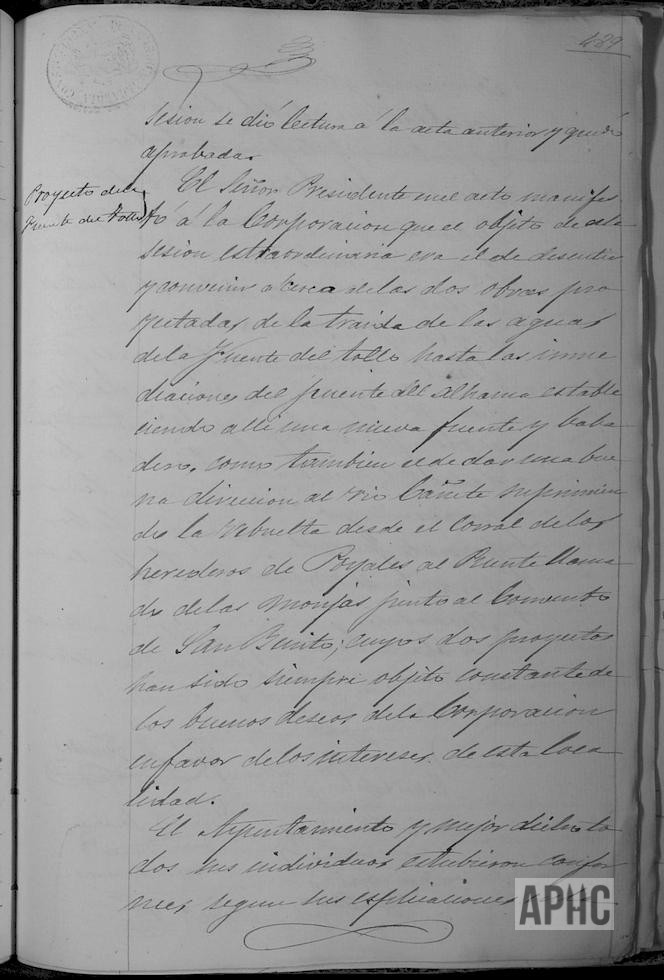 489
sesion se dió lectura á la acta anterior y quedó
aprobada.
Proyecto de la
Fuente del Tollo
El Señor Presidente en el acto manifes
tó á la Corporacion que el objeto de esta
sesion estraordinaria era el de descutir
y convenir acerca de las dos obras pro
yetadas de la traida de las aguas
de la Fuente del tollo hasta las inme
diaciones del puente del Alhama estable
ciendo alli una nueva fuente y baba
dero, como tambien el de dar una bue
na direccion al rio Cañete suprimien
do la rebuelta desde el Corral de los
herederos de Poyales al Puente llama
do de las Monjas junto al Combento
de San Benito; cuyos dos proyectos
han sido siempre objeto constante de
los buenos deseos de la Corporacion
en favor de los intereses de esta loca
lidad.
El Ayuntamiento y mejor dicho to
dos sus individuos estubieron confor
mes segun sus esplicaciones
APHC